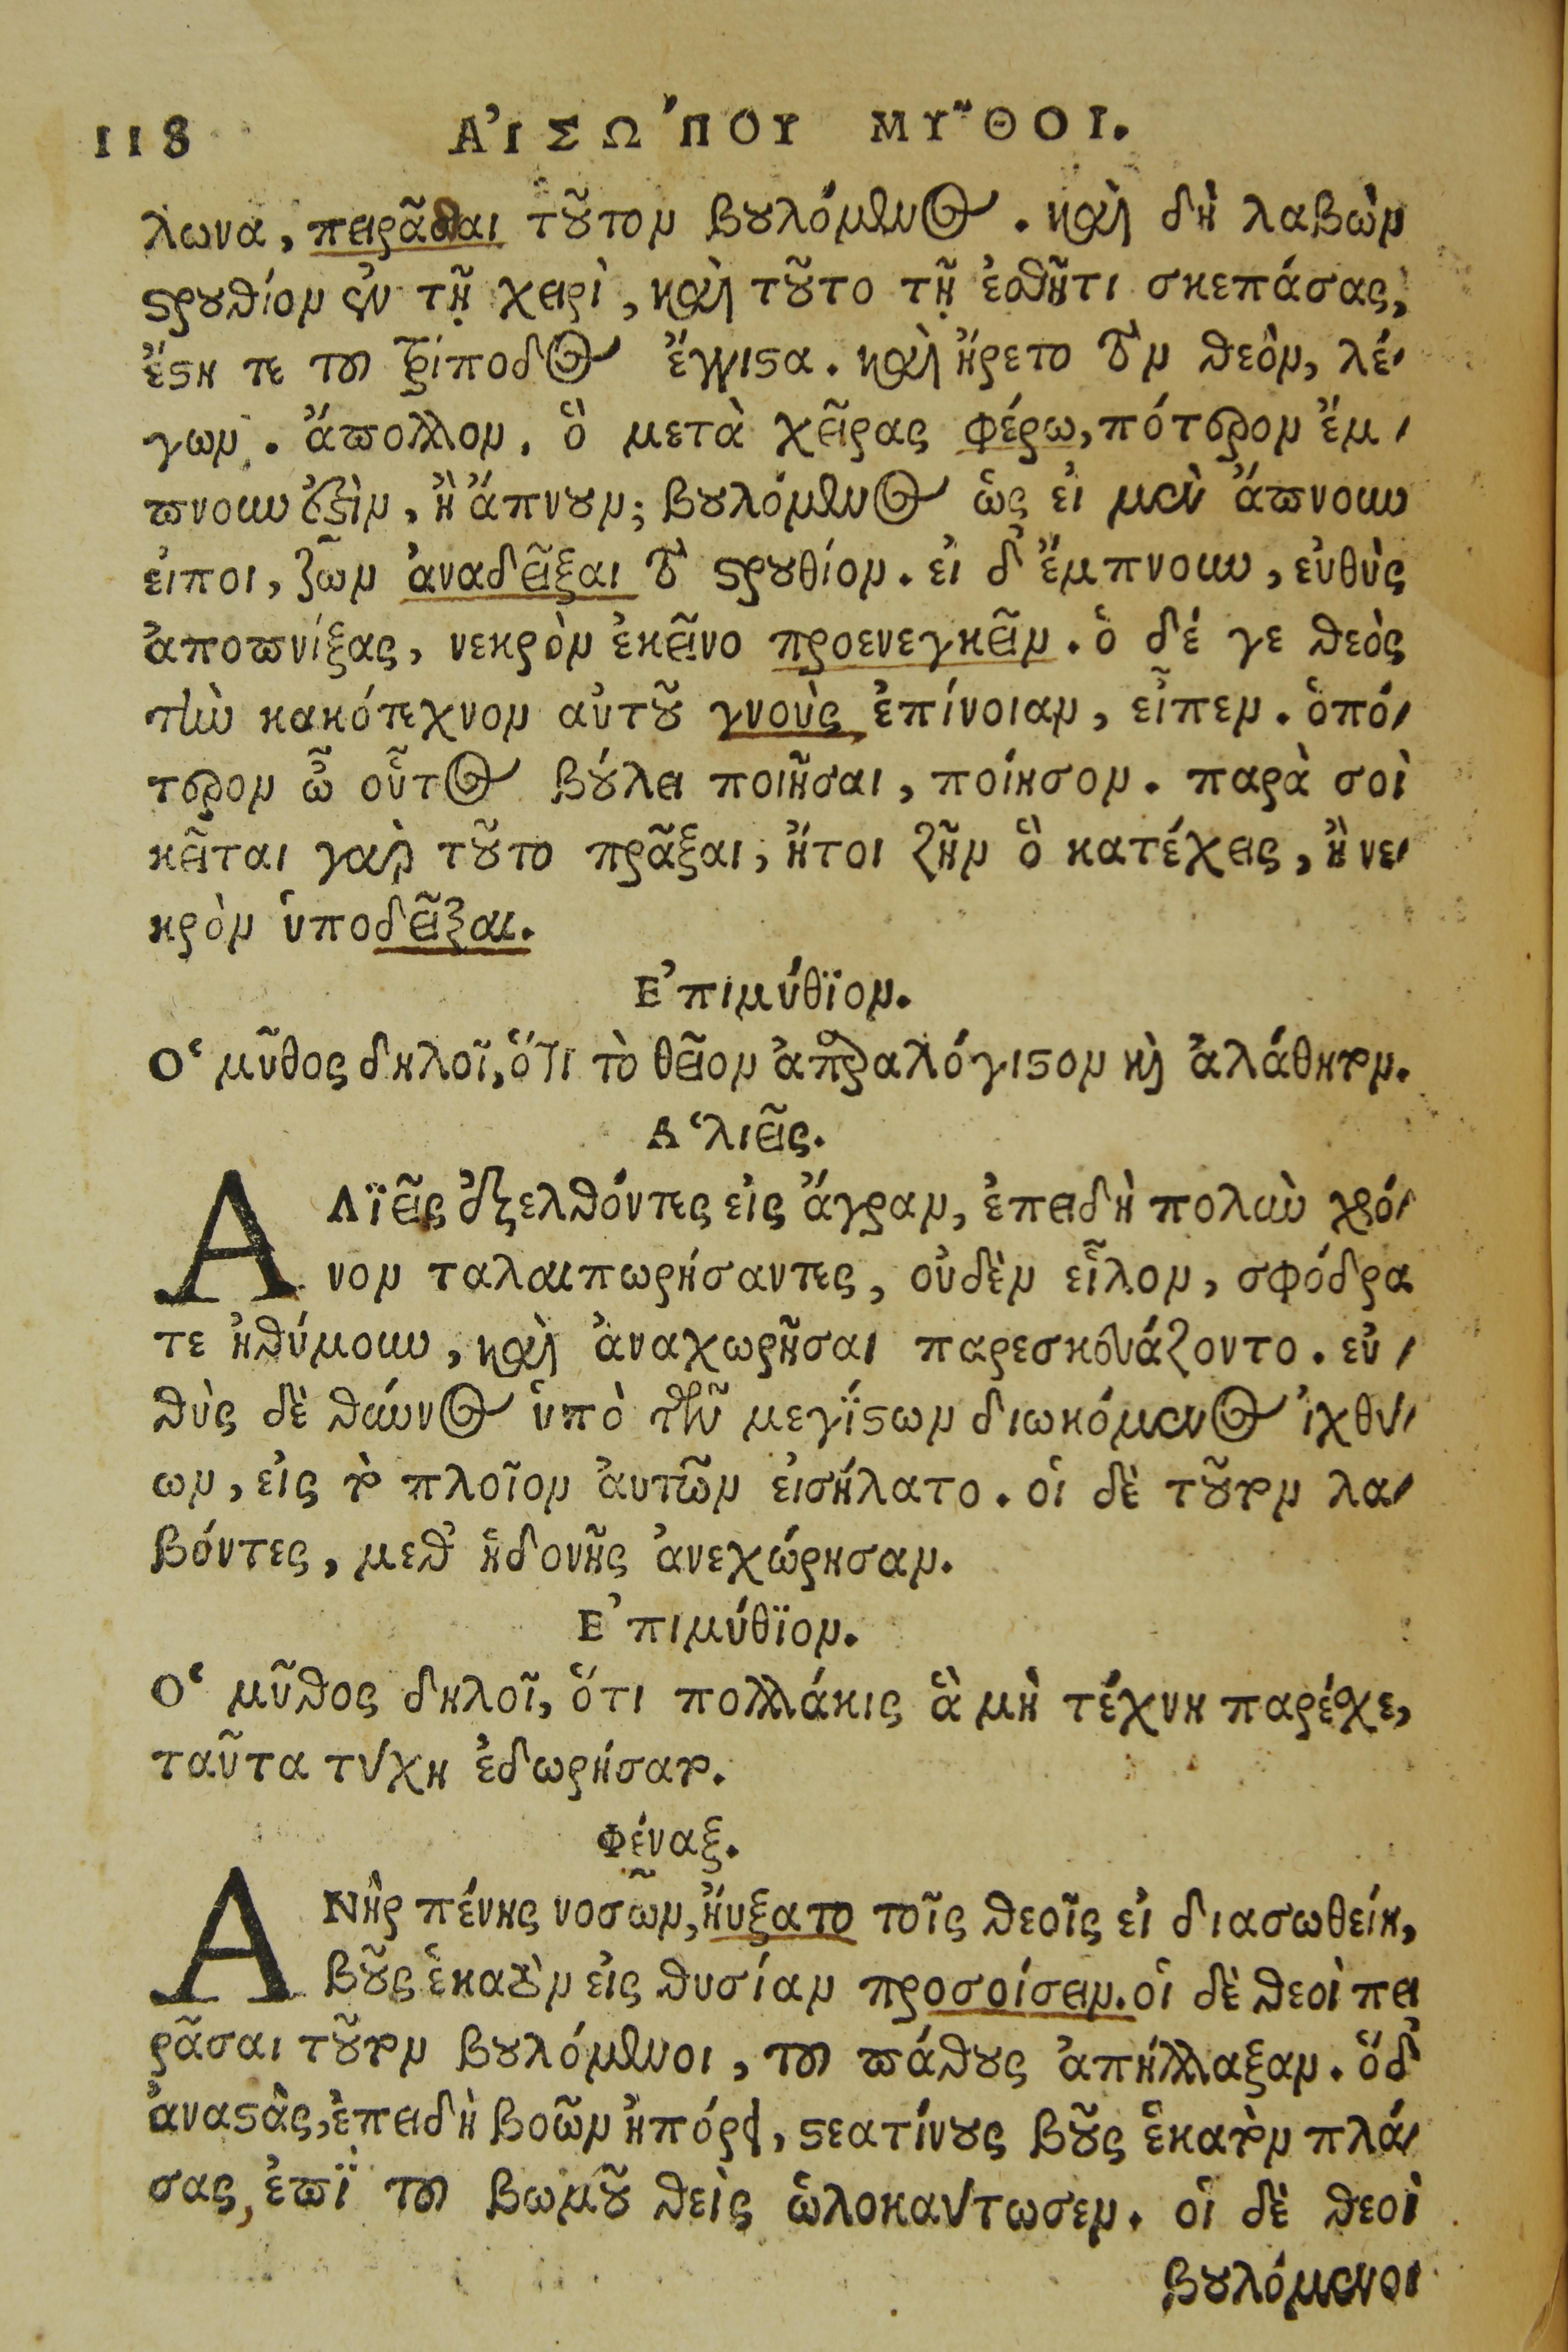 118 ΑἸΣΩ´ΠΟΥ ΜΥ῀ΘΟΙ.
λωνα, πειρᾶσθαι τοῦτον βουλόμενος. καὶ δὴ λαβὼν
στρουθίον ἐν τῇ χειρὶ, καὶ τοῦτο τῇ ἐσθῆτι σκεπάσας,
ἔστη τε τοῦ τρίποδος ἔγγιστα. καὶ ἤρετο τὸν θεὸν, λέ-
γων. ἄπολλον, ὃ μετὰ χεῖρας φέρω, πότερον ἔμ-
πνουν ἐστὶν, ἢ ἄπνουν; βουλόμενος ὡς εἰ μὲν ἄπνουν
εἴποι, ζῶν ἀναδεῖξαι τὸ στρουθίον. εἰ δ' ἔμπνουν, εὐθὺς
ἀποπνίξας, νεκρὸν ἐκεῖνο προενεγκεῖν. ὁ δέ γε θεὸς
τὴν κακότεχνον αὐτοῦ γνοὺς ἐπίνοιαν, εἶπεν. ὁπό-
τερον ὦ οὗτος βούλει ποιῆσαι, ποίησον. παρὰ σοὶ
κεῖται γὰρ τοῦτο πρᾶξαι, ἤτοι ζῆν ὃ κατέχεις, ἢ νε-
κρὸν ὑποδεῖξαι.
Ἐπιμύθϊον.
Ὁ μῦθος δηλοῖ, ὅτι τὸ θεῖον ἀπαραλόγιστον καὶ ἀλάθητον.
Ἁλιεῖς.
ΑΛϊεῖς ἐξελθόντες εἰς ἄγραν, ἐπειδὴ πολὺν χρό-
νον ταλαιπωρήσαντες, οὐδὲν εἷλον, σφόδρα
τε ἠθύμουν, καὶ ἀναχωρῆσαι παρεσκευάζοντο. εὐ-
θὺς δὲ θύννος ὑπὸ τῶν μεγίστων διωκόμενος ἰχθύ-
ων, εἰς τὸ πλοῖον ἀυτῶν εἰσήλατο. οἱ δὲ τοῦτον λα-
βόντες, μεθ' ἡδονῆς ἀνεχώρησαν.
Ἐπιμύθϊον.
Ὁ μῦθος δηλοῖ, ὅτι πολλάκις ἃ μὴ τέχνη παρέχε,
ταῦτα τύχη ἐδωρήσατο.
Φέναξ.
ΑΝὴρ πένης νοσῶν, ἤυξατο τοῖς θεοῖς εἰ διασωθείη,
βοῦς ἑκατὸν εἰς θυσίαν προσοίσειν. οἱ δὲ θεοὶ πει
ρᾶσαι τοῦτον βουλόμενοι, τοῦ πάθους ἀπήλλαξαν. ὅδ'
ἀναστὰς, ἐπειδὴ βοῶν ἠπόρει, στεατίνους βοῦς ἑκατὸν πλά-
σας, ἐπῒ τοῦ βωμοῦ θεὶς ὡλοκαύτωσεν. οἱ δὲ θεοὶ
βουλόμενοι